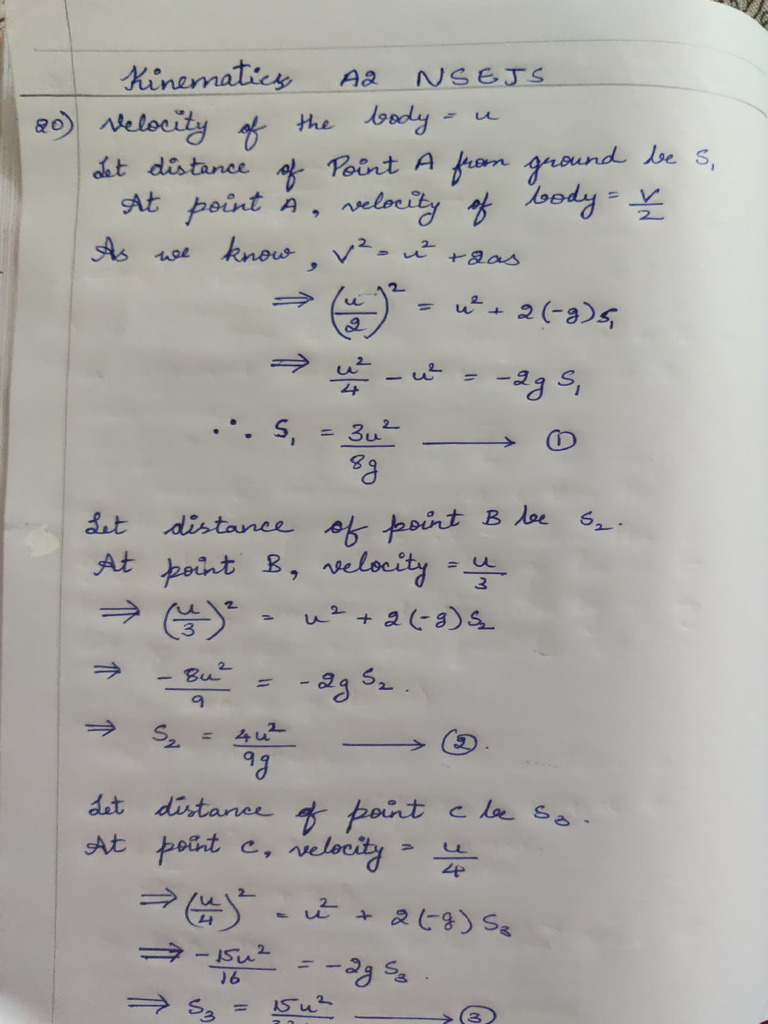 Kinematics A2 NSEJS
20) Velocity of the body = u
Let distance of Point A from ground be S₁
At point A, velocity of body = V/2
As we know, V² = u² + 2as
⇒ (u/2)² = u² + 2(-g)S₁
⇒ u²/4 - u² = -2g S₁
∴ S₁ = 3u²/8g ⟶ ①
Let distance of point B be S₂.
At point B, velocity = u/3
⇒ (u/3)² = u² + 2(-g)S₂
⇒ -8u²/9 = -2g S₂.
⇒ S₂ = 4u²/9g ⟶ ②.
Let distance of point C be S₃.
At point C, velocity = u/4
⇒ (u/4)² = u² + 2(-g) S₃
⇒ -15u²/16 = -2g S₃.
⇒ S₃ = 15u² ⟶ ③